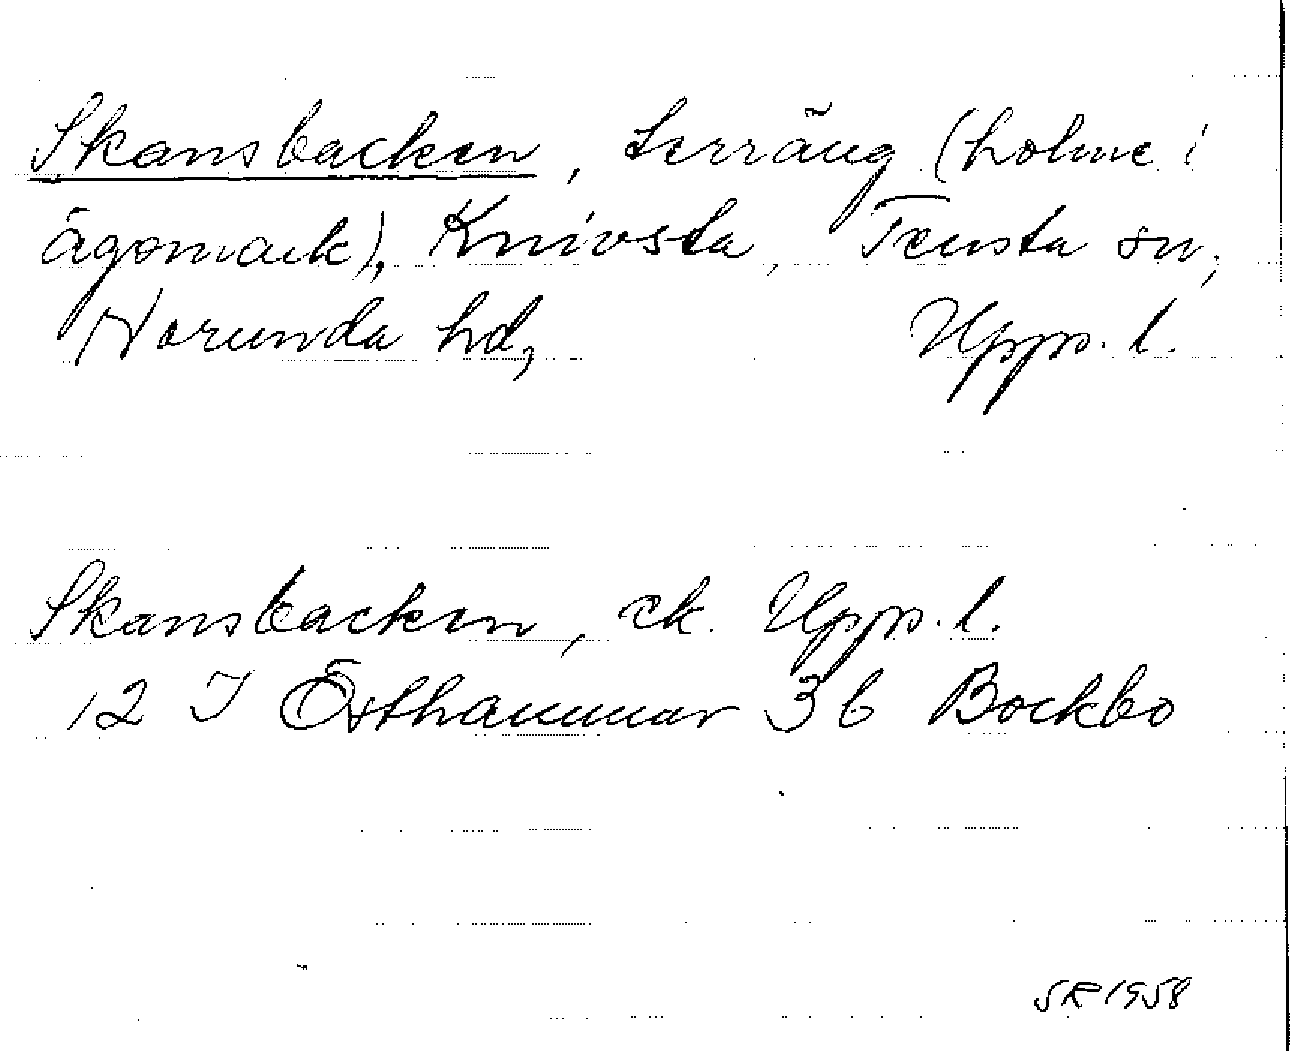 Skansbacken, terräng (holme i
ägomark), Knivsta, Tensta sn,
Norunda hd, Upps. l.
Skansbacken, ek. Upps. l.
12 I Östhammar 3 b Bockbo
SR 1958